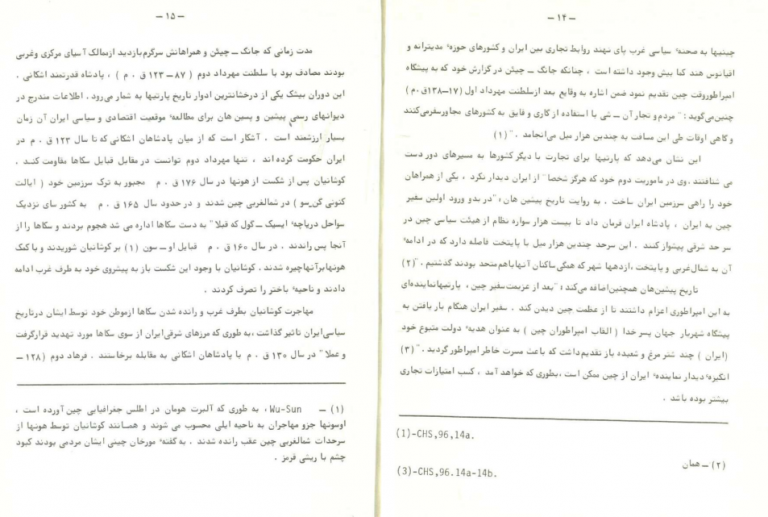 – ۱۴ –
چینیها به صحنه‌ٔ سیاسی غرب پای نهند روابط تجاری بین ایران و کشورهای حوزه‌ٔ مدیترانه و
اقیانوس هند کما بیش وجود داشته است ، چنانکه جانگ – چیئن در گزارش خود که به پیشگاه
امپراطوروقت چین تقدیم نمود ضمن اشاره به وقایع بعد ازسلطنت مهرداد اول (۱۷–۱۳۸ق.م)
چنین‌میگوید : "مردم و تجار آن – شی با استفاده از گاری و قایق به کشورهای مجاورسفرمی‌کنند
و گاهی اوقات طی این مسافت به چندین هزار میل می‌انجامد . " (۱)
این نشان می‌دهد که پارتیها برای تجارت با دیگر کشورها به مسیرهای دور دست
می شتافتند .وی در ماموریت دوم خود که هرگز شخصا" از ایران دیدار نکرد ، یکی از همراهان
خود را راهی سرزمین ایران ساخت . به روایت تاریخ پیشین هان :"در بدو ورود اولین سفیر
چین به ایران ، پادشاه ایران فرمان داد تا بیست هزار سواره نظام از هیئت سیاسی چین در
سر حد شرقی پیشواز کنند . این سرحد چندین هزار میل با پایتخت فاصله دارد که در ادامه‌ٔ
آن به شمال‌غربی و پایتخت ، ازدهها شهر که همگی‌ساکنان آنهاباهم‌متحد بودند گذشتیم ."(۲)
تاریخ پیشین‌هان همچنین‌اضافه می‌کند :"بعد از عزیمت‌سفیر چین ، پارتیهانماینده‌ای
به این امپراطوری اعزام داشتند تا از عظمت چین دیدن کند . سفیر ایران هنگام بار یافتن به
پیشگاه شهریار جهان پسر خدا ( القاب امپراطوران چین ) به عنوان هدیه‌ٔ دولت متبوع خود
(ایران ) چند شتر مرغ و شعبده باز تقدیم‌داشت که باعث مسرت خاطر امپراطور گردید ."(۳)
انگیزه‌ٔ دیدار نماینده‌ٔ ایران از چین ممکن است ،بطوری که خواهد آمد ، کسب امتیازات تجاری
بیشتر بوده باشد .
(1)-CHS,96,14a.
(۲) – همان
(3)-CHS,96.14a-14b.
– ۱۵ –
مدت زمانی که جانگ – چیئن و همراهانش سرگرم‌بازدید ازممالک آسیای مرکزی وغربی
بودند مصادف بود با سلطنت مهرداد دوم ( ۸۷ – ۱۲۳ ق . م ) ، پادشاه قدرتمند اشکانی .
این دوران بیشک یکی از درخشانترین ادوار تاریخ پارتیها به شمار می‌رود . اطلاعات مندرج در
دیوانهای رسمی پیشین و پسین هان برای مطالعه‌ٔ موقعیت اقتصادی و سیاسی ایران آن زمان
بسیار ارزشمند است . آشکار است که از میان پادشاهان اشکانی که تا سال ۱۲۳ ق . م در
ایران حکومت کرده اند ، تنها مهرداد دوم توانست در مقابل قبایل سکاها مقاومت کنـد .
کوشانیان پس از شکست از هونها در سال ۱۷۶ ق . م مجبور به ترک سرزمین خود ( ایالت
کنونی گن‌سو ) در شمالغربی چین شدند و در حدود سال ۱۶۵ ق . م به کشور سای نزدیک
سواحل دریاچه‌ٔ ایسیک – کول که قبلا" به دست سکاها اداره می شد هجوم بردند و سکاها را از
آنجا پس راندند . در سال ۱۶۰ ق . م قبایل او – سون (۱) بر کوشانیان شوریدند و با کمک
هونهابرآنهاچیره شدند . کوشانیان با وجود این شکست باز به پیشروی خود به طرف غرب ادامه
دادند و ناحیه‌ٔ باختر را تصرف کردند .
مهاجرت کوشانیان بطرف غرب و رانده شدن سکاها ازموطن خود توسط ایشان درتاریخ
سیاسی‌ایران تاثیر گذاشت ، به طوری که مرزهای شرقی‌ایران از سوی سکاها مورد تهدید قرارگرفت
و عملا" در سال ۱۳۰ ق . م با پادشاهان اشکانی به مقابله برخاستند . فرهاد دوم (۱۲۸ –
(۱) – Wu-Sun ، به طوری که آلبرت هرمان در اطلس جغرافیایی چین آورده است ،
اوسونها جزو مهاجران به ناحیه ایلی محسوب می شوند و همـانند کوشانیان توسط هونها از
سرحدات شمالغربی چین عقب رانده شدند . به گفته‌ٔ مورخان چینی ایشان مردمی بودند کبود
چشم با ریشی قرمز .